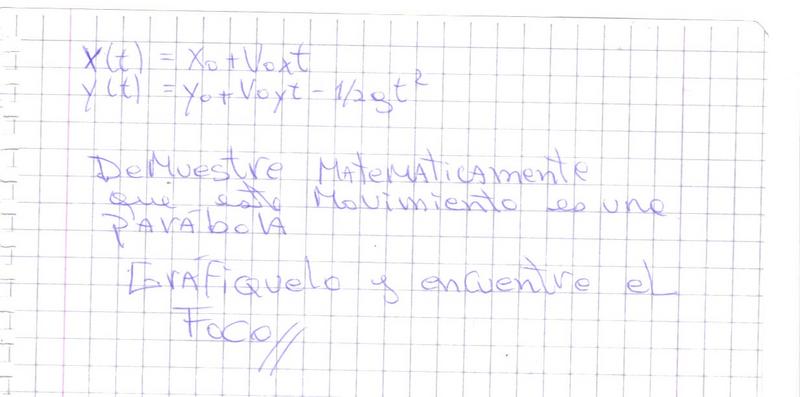 X(t) = X0 + V0xt
y(t) = y0 + V0yt - 1/2gt²
DeMuestre MATeMATicAmente
que este Movimiento es una
PARÁbolA
GRAFiquelo y encuentre el
Foco//